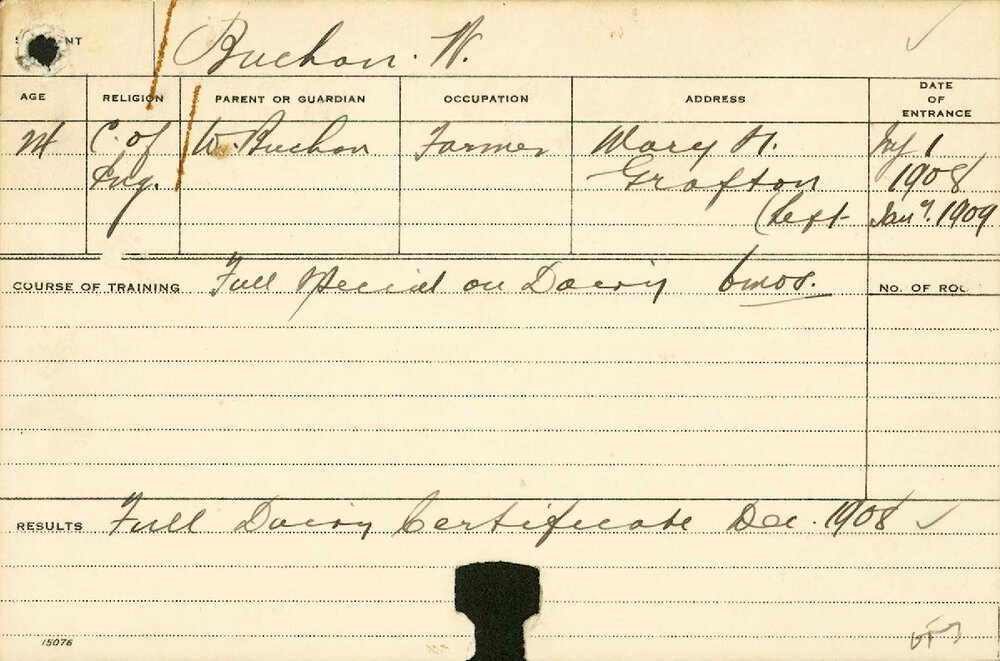 Buchan. W.
AGE RELIGION PARENT OR GUARDIAN OCCUPATION ADDRESS DATE OF ENTRANCE
24 C. of W. Buchan Farmer Mary St. Jly 1
Eng. Grafton 1908
(Left Jany. 1909
COURSE OF TRAINING Full Special on Dairy 6 mos. NO. OF
RESULTS Full Dairy Certificate Dec. 1908
15076